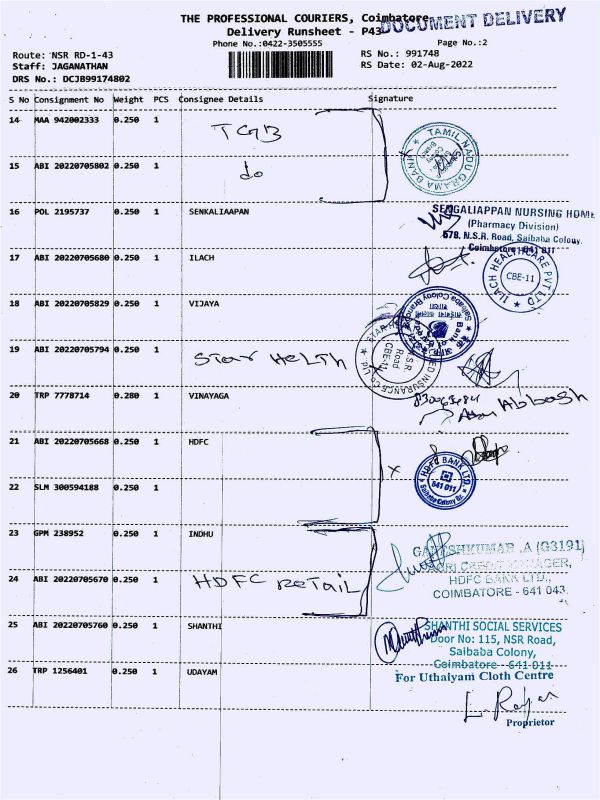 THE PROFESSIONAL COURIERS, Coimbatore
DOCUMENT DELIVERY
Delivery Runsheet - P43
Phone No.:0422-3505555
Page No.:2
Route: NSR RD-1-43
RS No.: 991748
Staff: JAGANATHAN
RS Date: 02-Aug-2022
DRS No.: DCJB99174802
S No Consignment No Weight PCS Consignee Details Signature
14 MAA 942002333 0.250 1 TGB
TAMIL NADU GRAMA BANK
15 ABI 20220705802 0.250 1 do
16 POL 2195737 0.250 1 SENKALIAAPAN
SENGALIAPPAN NURSING HOME
(Pharmacy Division)
578, N.S.R. Road, Saibaba Colony.
Coimbatore - 641 011
17 ABI 20220705680 0.250 1 ILACH
ILACH HEALTHCARE PVT LTD
CBE-11
18 ABI 20220705829 0.250 1 VIJAYA
Saibaba Colony Branch
Bank of Baroda
19 ABI 20220705794 0.250 1 Star Helth
N.S.R.
Road
CBE-11
20 TRP 7778714 0.280 1 VINAYAGA
Abbash
21 ABI 20220705668 0.250 1 HDFC
HDFC BANK LTD.
641 011
Saibaba Colony Br.
22 SLM 300594188 0.250 1
23 GPM 238952 0.250 1 INDHU
GANESHKUMAR .A (G3191)
AGRI CREDIT MANAGER,
HDFC BANK LTD.,
COIMBATORE - 641 043.
24 ABI 20220705670 0.250 1 HDFC RETAIL
25 ABI 20220705760 0.250 1 SHANTHI
SHANTHI SOCIAL SERVICES
Door No: 115, NSR Road,
Saibaba Colony,
Coimbatore - 641 011
26 TRP 1256401 0.250 1 UDAYAM
For Uthalyam Cloth Centre
Proprietor